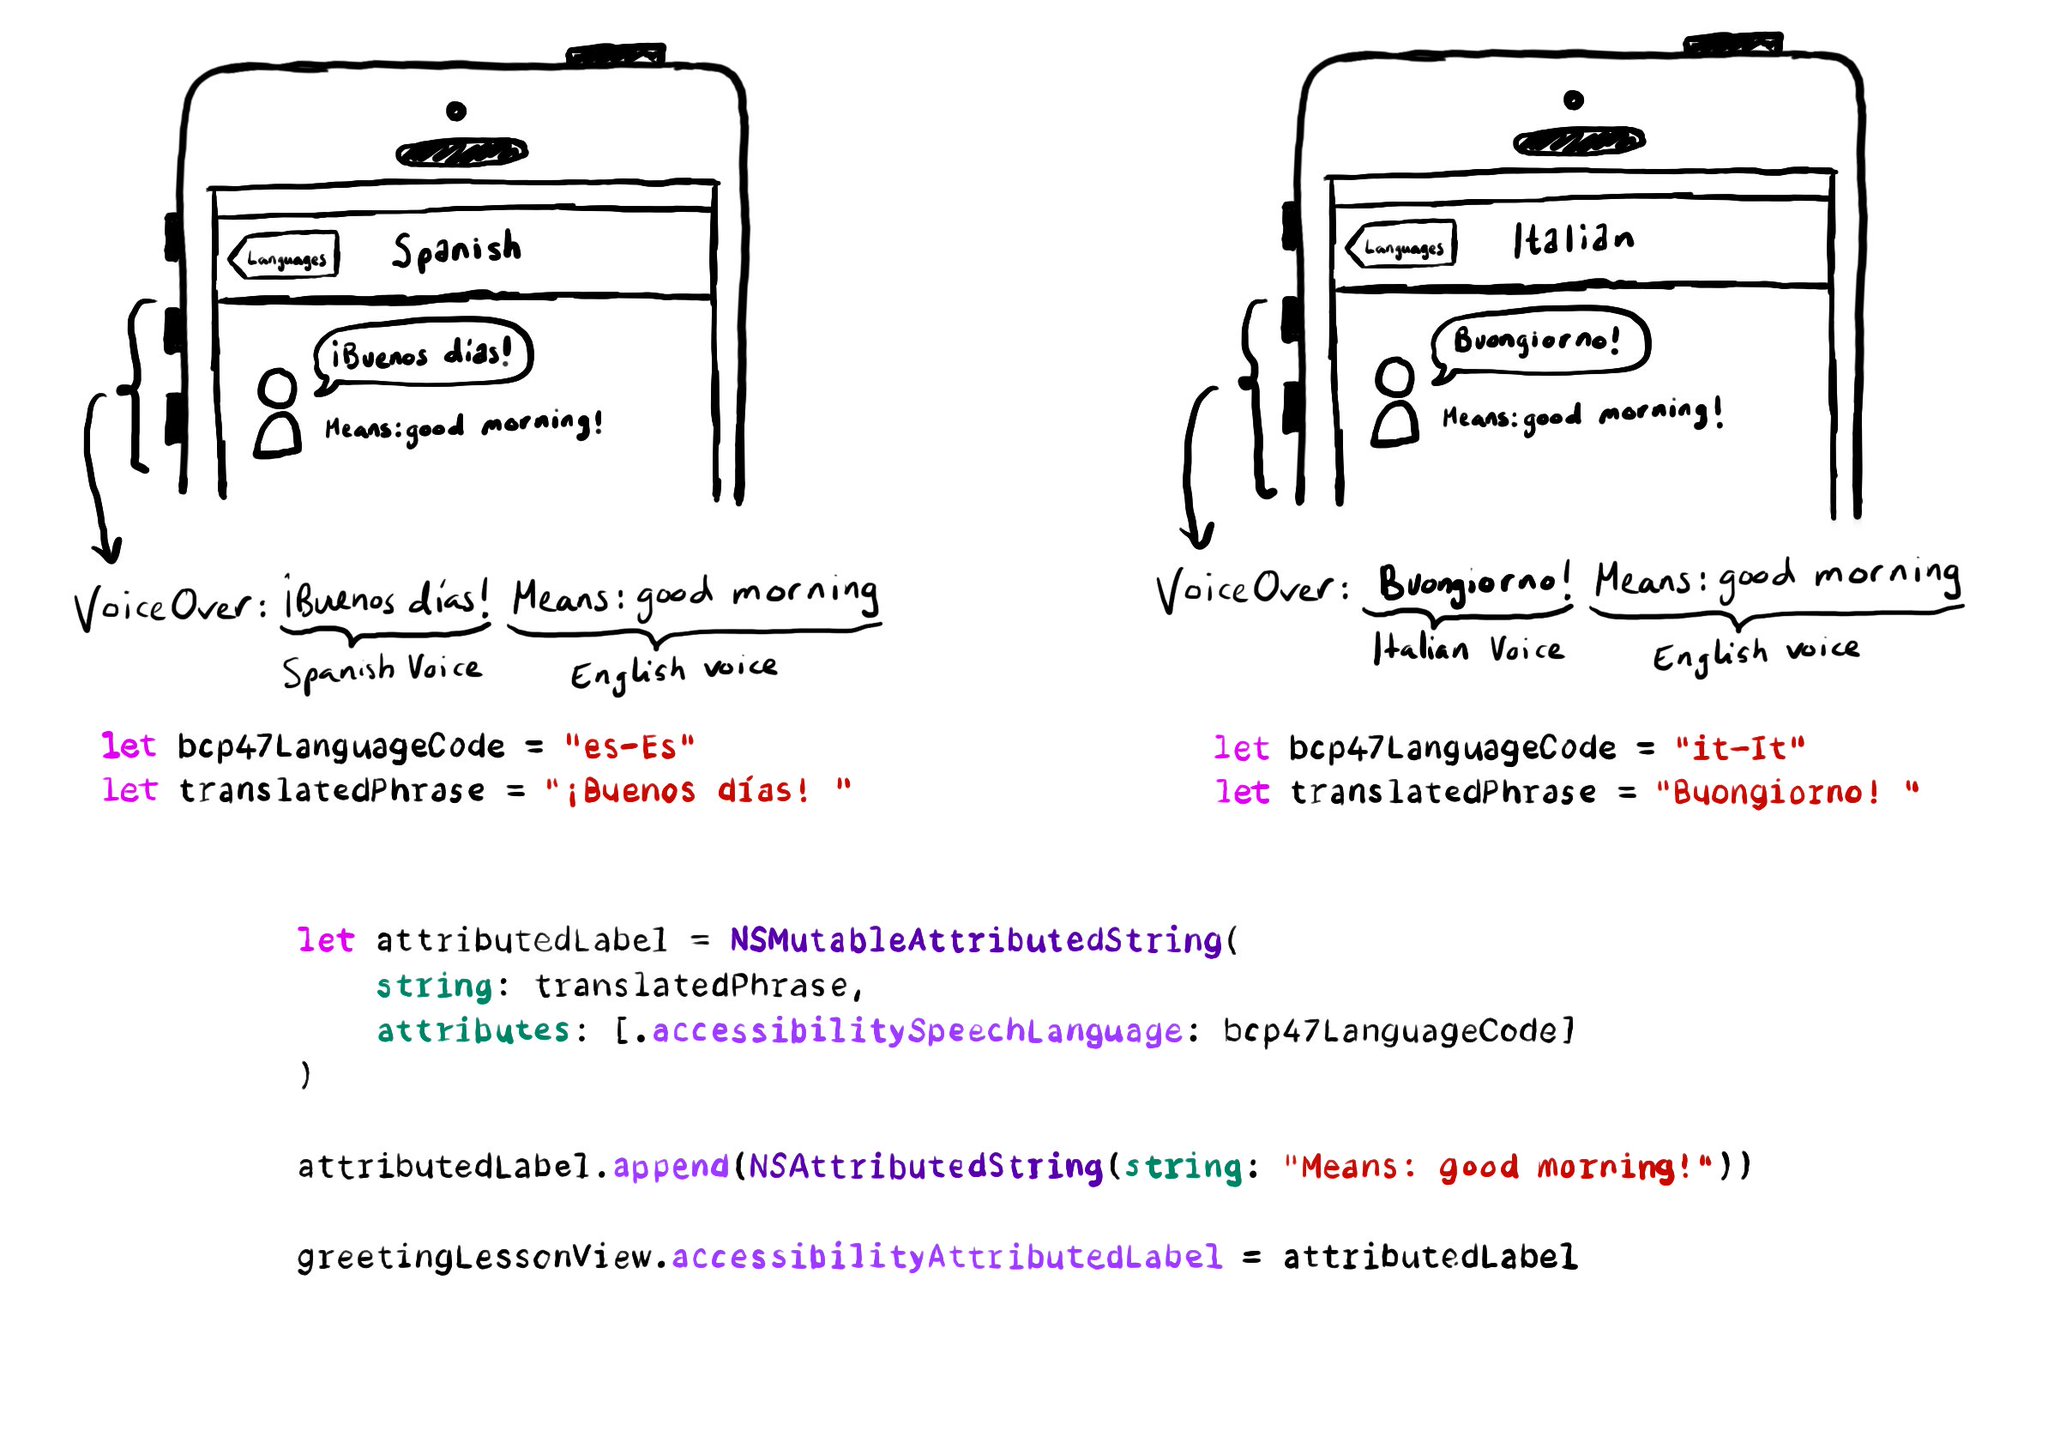 Languages Spanish
¡Buenos días!
Means: good morning!
VoiceOver: ¡Buenos días! Means: good morning
Spanish Voice English voice
let bcp47LanguageCode = "es-Es"
let translatedPhrase = "¡Buenos días! "
Languages Italian
Buongiorno!
Means: good morning!
VoiceOver: Buongiorno! Means: good morning
Italian Voice English voice
let bcp47LanguageCode = "it-It"
let translatedPhrase = "Buongiorno! "
let attributedLabel = NSMutableAttributedString(
string: translatedPhrase,
attributes: [.accessibilitySpeechLanguage: bcp47LanguageCode]
)
attributedLabel.append(NSAttributedString(string: "Means: good morning!"))
greetingLessonView.accessibilityAttributedLabel = attributedLabel